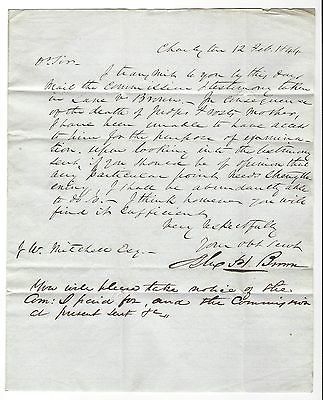 12 Feb. 1844
Dr Sir
I transmit to you by this days
Mail the Commission & testimony taken
in Lane v Brown - In consequence
of the death of Judge Frosts Mother,
I have been unable to have access
to him for the purpose of examina
tion. Upon looking into the testimony
sent, if you should be of opinion that
any particular point needs strengthe
ening, I shall be abundantly able
to do so - I think however you will
find it sufficient
Very respectfully
Your obt Servt
Brown
J W. Mitchell Esq. -
You will please take notice of the
Com: I paid for, and the Commission
at present sent &c,,